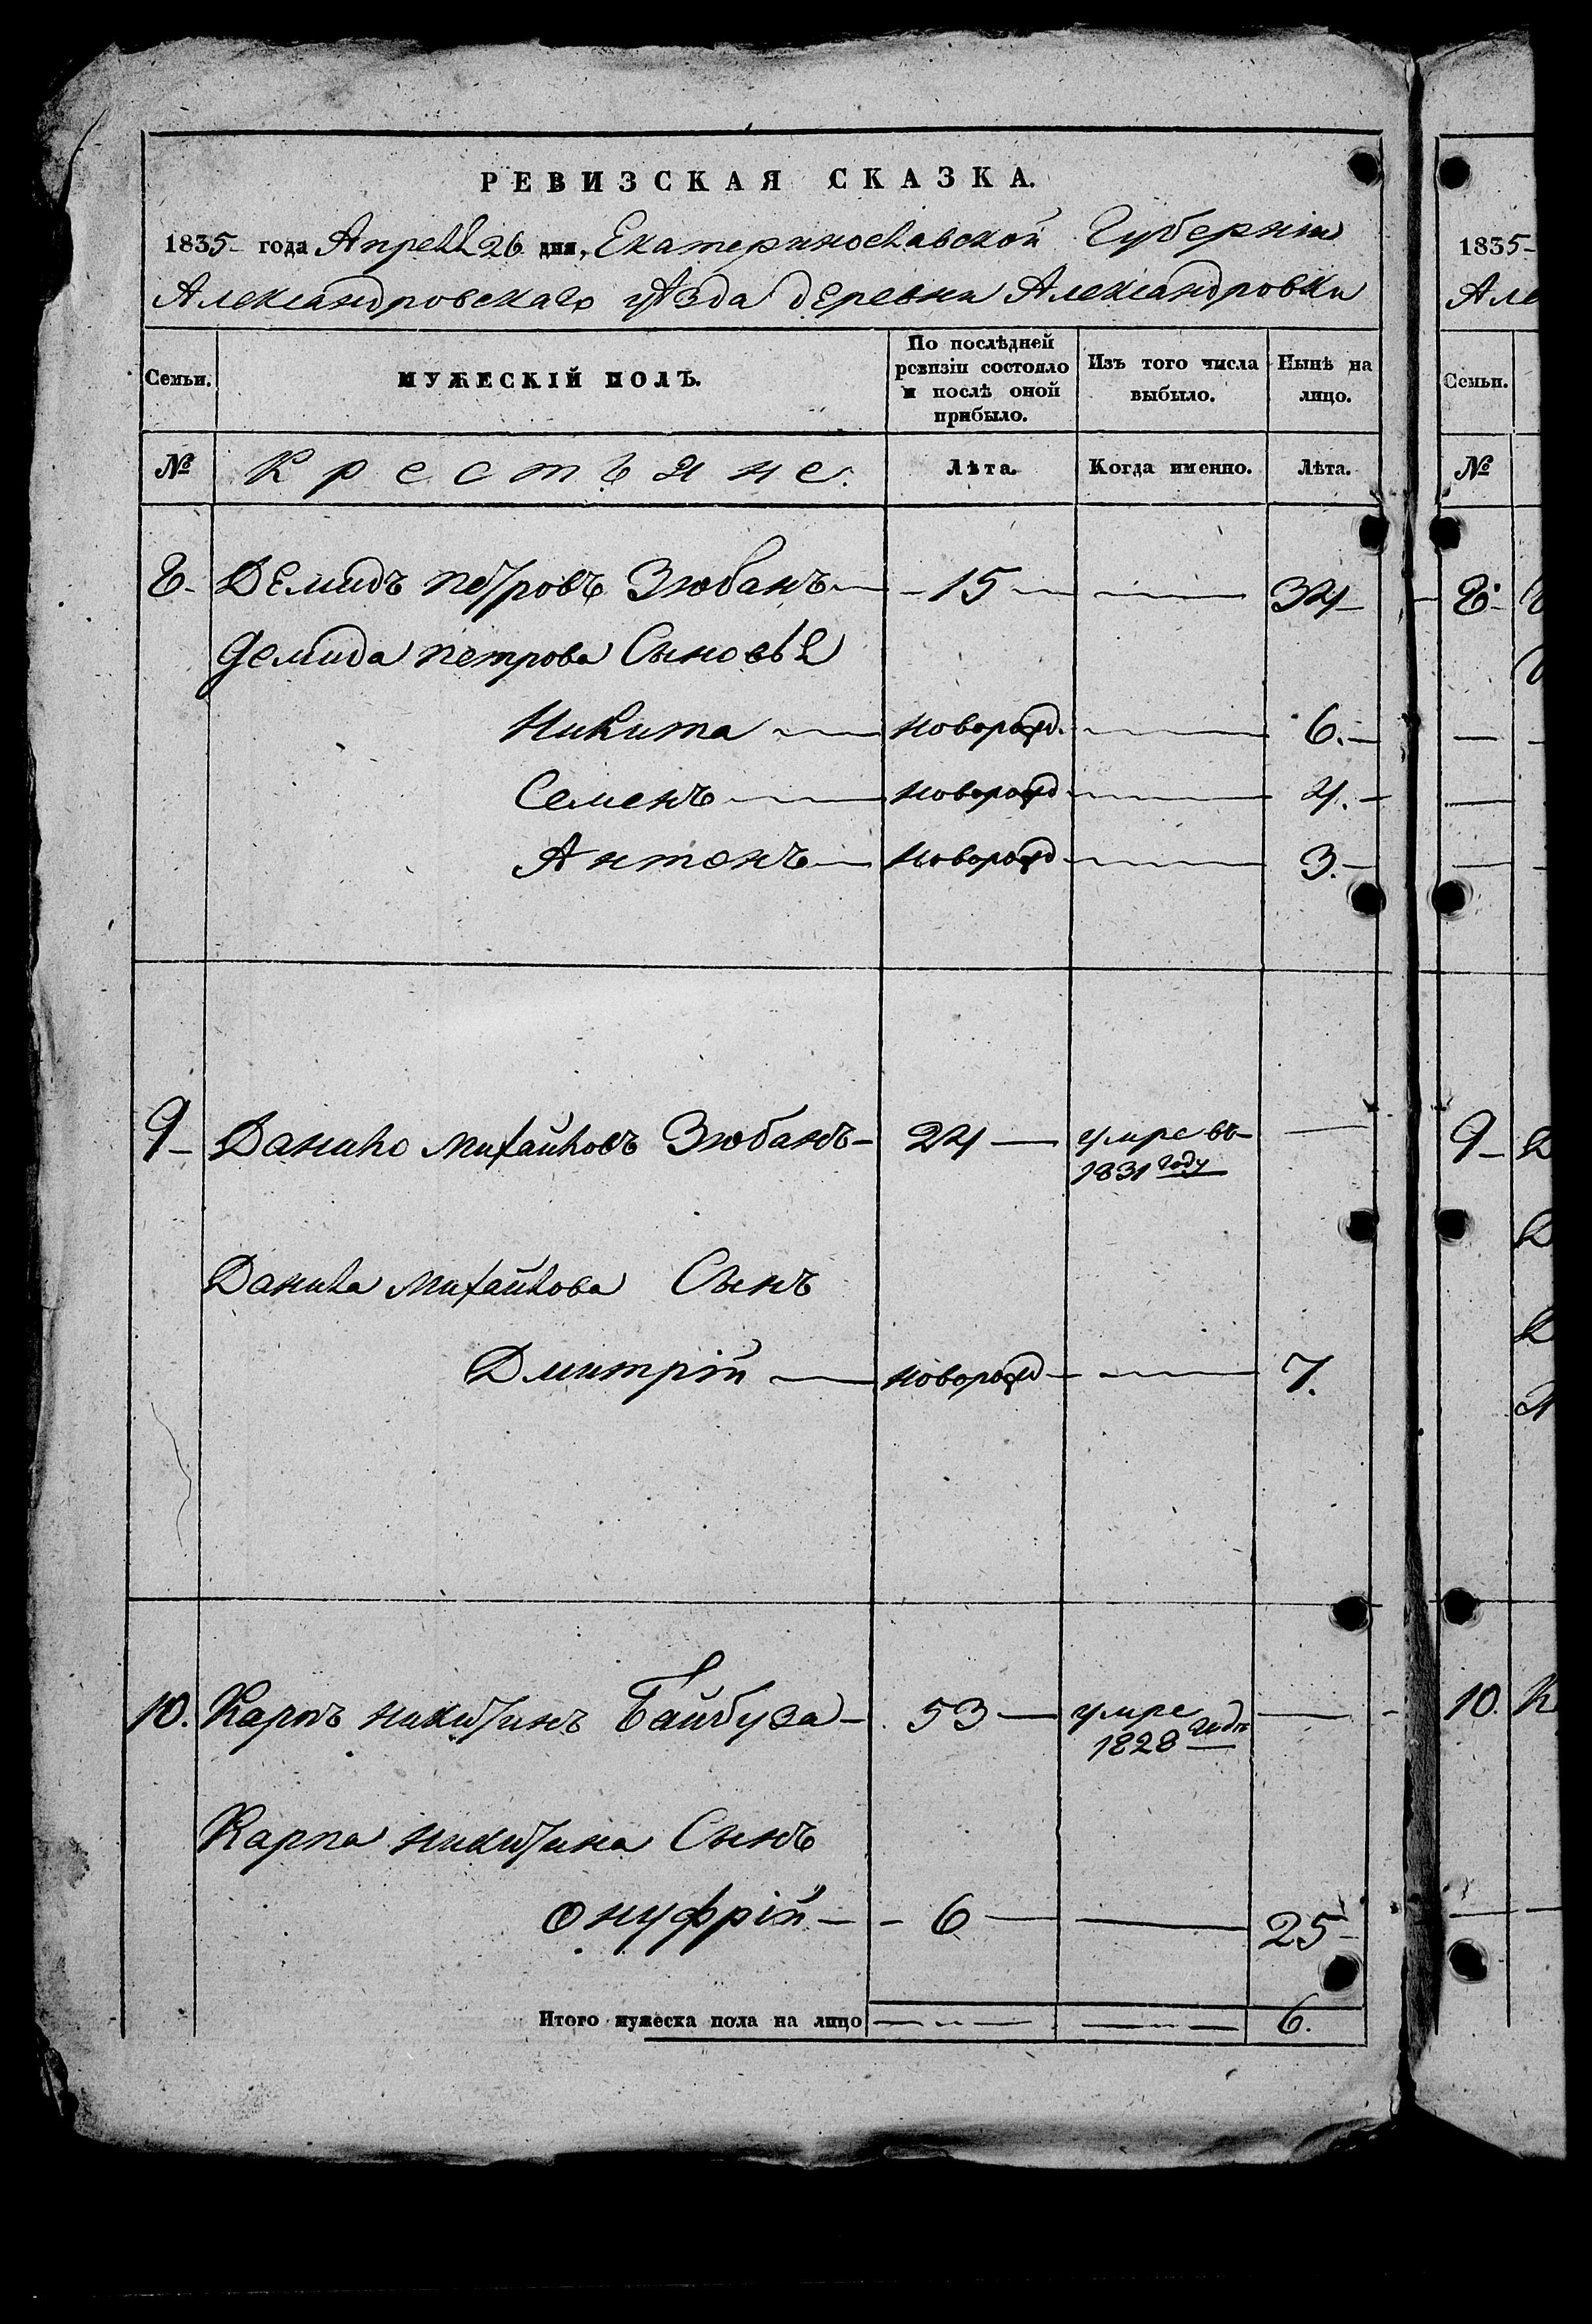 РЕВИЗСКАЯ СКАЗКА.
1835 года Апреля 26 дня, Екатеринославской Губерніи
Александровскаго уѣзда деревни Александровки
Семьи.
МУЖЕСКІЙ ПОЛЪ.
По послѣдней ревизіи состояло и послѣ оной прибыло.
Изъ того числа выбыло.
Нынѣ на лицо.
№
Крестьяне.
Лѣта.
Когда именно.
Лѣта.
8. Демидъ Петровъ Зюбанъ — 15 — — 34
Демида Петрова Сыновья
Никита — новорожд. — 6.
Семенъ — новорожд — 4.
Антонъ — новорожд — 3.
9 Данило Михайловъ Зюбанъ — 24 — умре въ —
1831 году
Данила Михайлова Сынъ
Дмитрій — новорожд — 7.
10. Карпъ Никитинъ Байбуза — 53 — умре —
1828 года
Карпа Никитина Сынъ
Онуфрій — 6 — — 25
Итого мужеска пола на лицо — — 6.
1835
Але
Семьи.
№
8
9
10. К